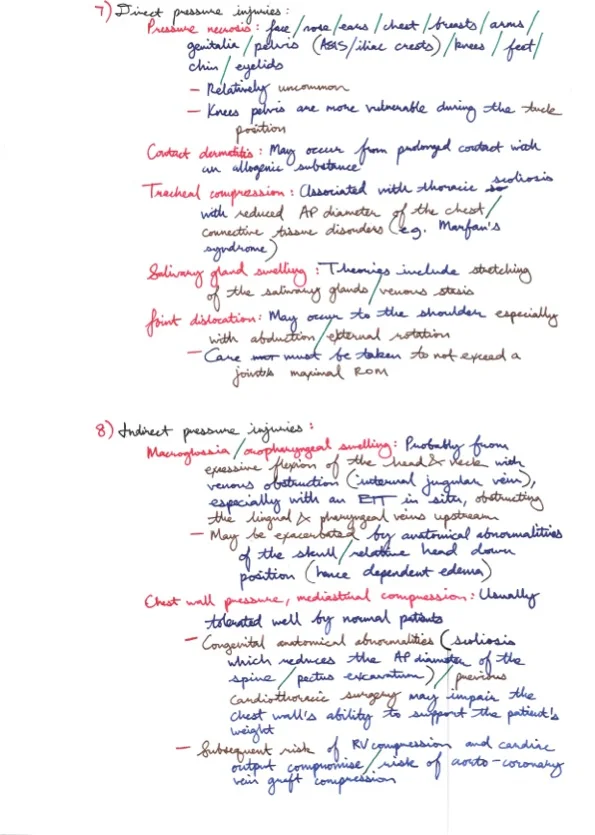 7) Direct pressure injuries:
Pressure necrosis: face/nose/ears/chest/breasts/arms/
genitalia/pelvis (ASIS/iliac crests)/knees/feet/
chin/eyelids
- Relatively uncommon
- Knees pelvis are more vulnerable during the tuck
position
Contact dermatitis: May occur from prolonged contact with
an allogenic substance
Tracheal compression: Associated with thoracic so scoliosis
with reduced AP diameter of the chest/
connective tissue disorders (e.g. Marfan's
syndrome)
Salivary gland swelling: Theories include stretching
of the salivary glands/venous stasis
Joint dislocation: May occur to the shoulder especially
with abduction/external rotation
- Care must be taken to not exceed a
joint's maximal ROM
8) Indirect pressure injuries:
Macroglossia/oropharyngeal swelling: Probably from
excessive flexion of the head & neck with
venous obstruction (internal jugular vein),
especially with an ETT in situ, obstructing
the lingual & pharyngeal veins upstream
- May be exacerbated by anatomical abnormalities
of the skull/relative head down
position (hence dependent edema)
Chest wall pressure, mediastinal compression: Usually
tolerated well by normal patients
- Congenital anatomical abnormalities (scoliosis
which reduces the AP diameter of the
spine/pectus excavatum)/previous
cardiothoracic surgery may impair the
chest wall's ability to support the patient's
weight
- Subsequent risk of RV compression and cardiac
output compromise/risk of aorto-coronary
vein graft compression